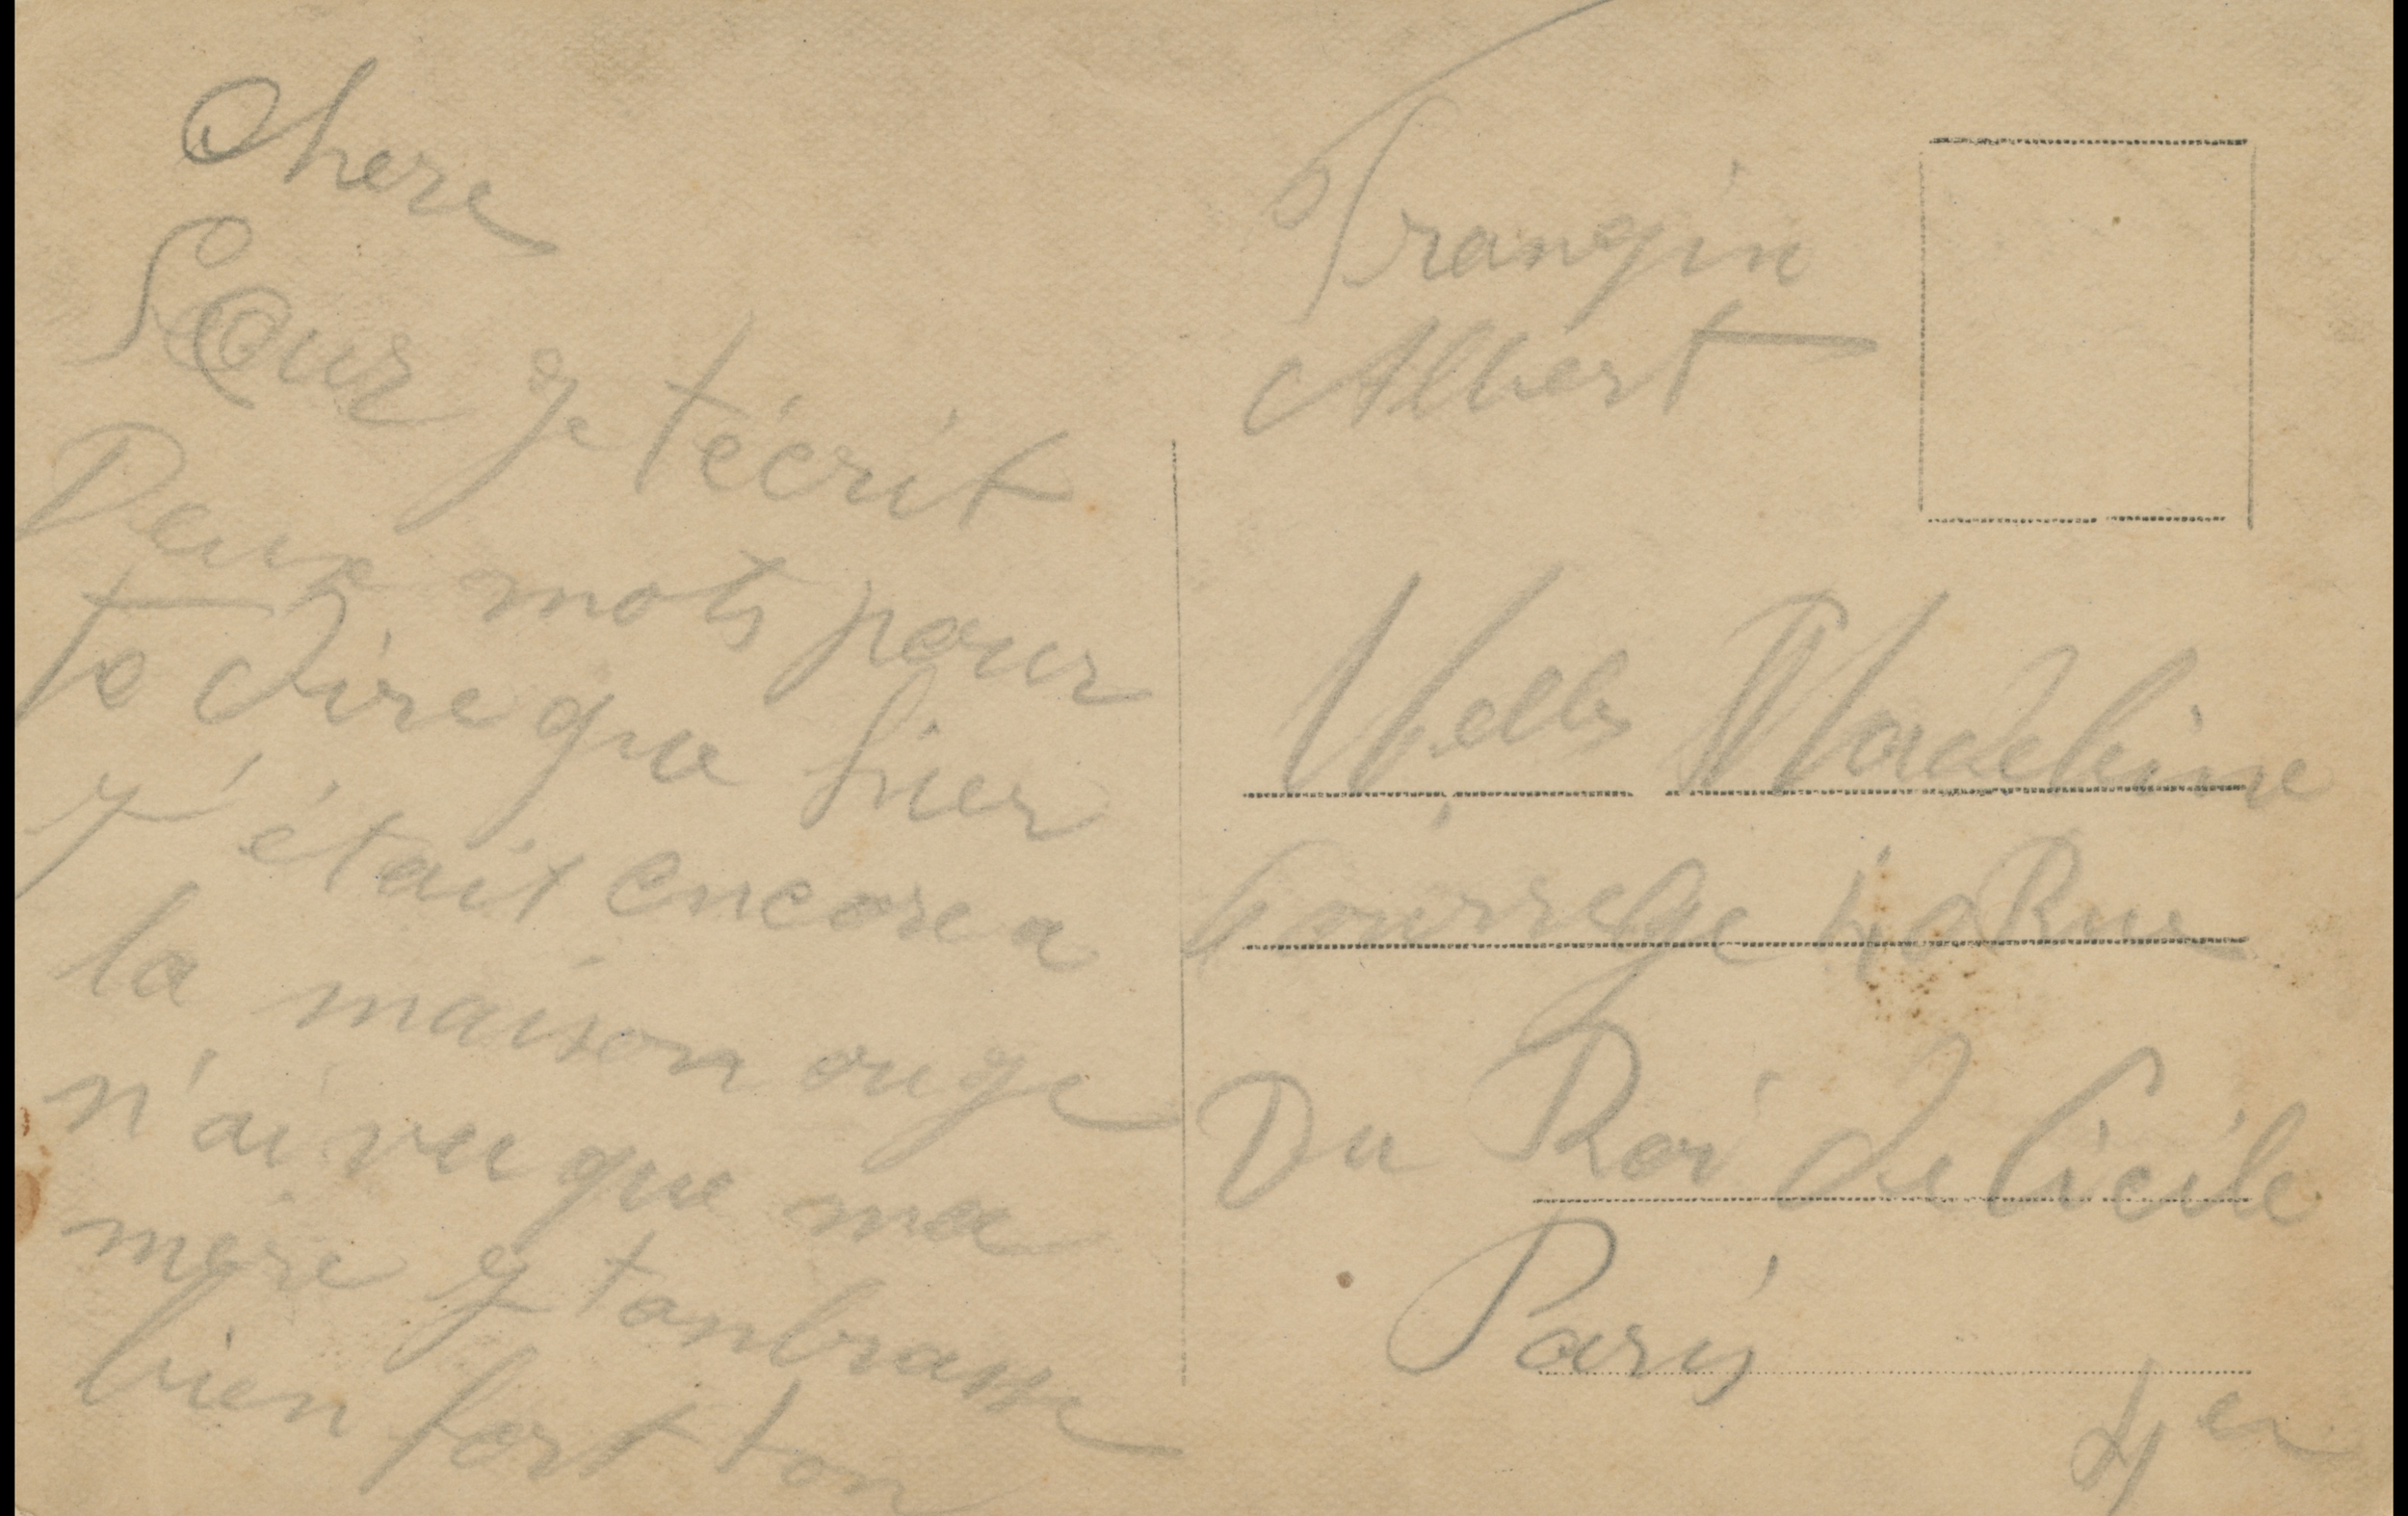 Chere
Sœur Je t'écrit
Deux mots pour
te dire que hier
J'était encore a
la maison ou ge
n'ai vu que ma
mère Je tanbrasse
bien fort ton
Frangin
Albert
Melle Madeleine
40 Rue
Du Roi de Cicile
Paris
4er